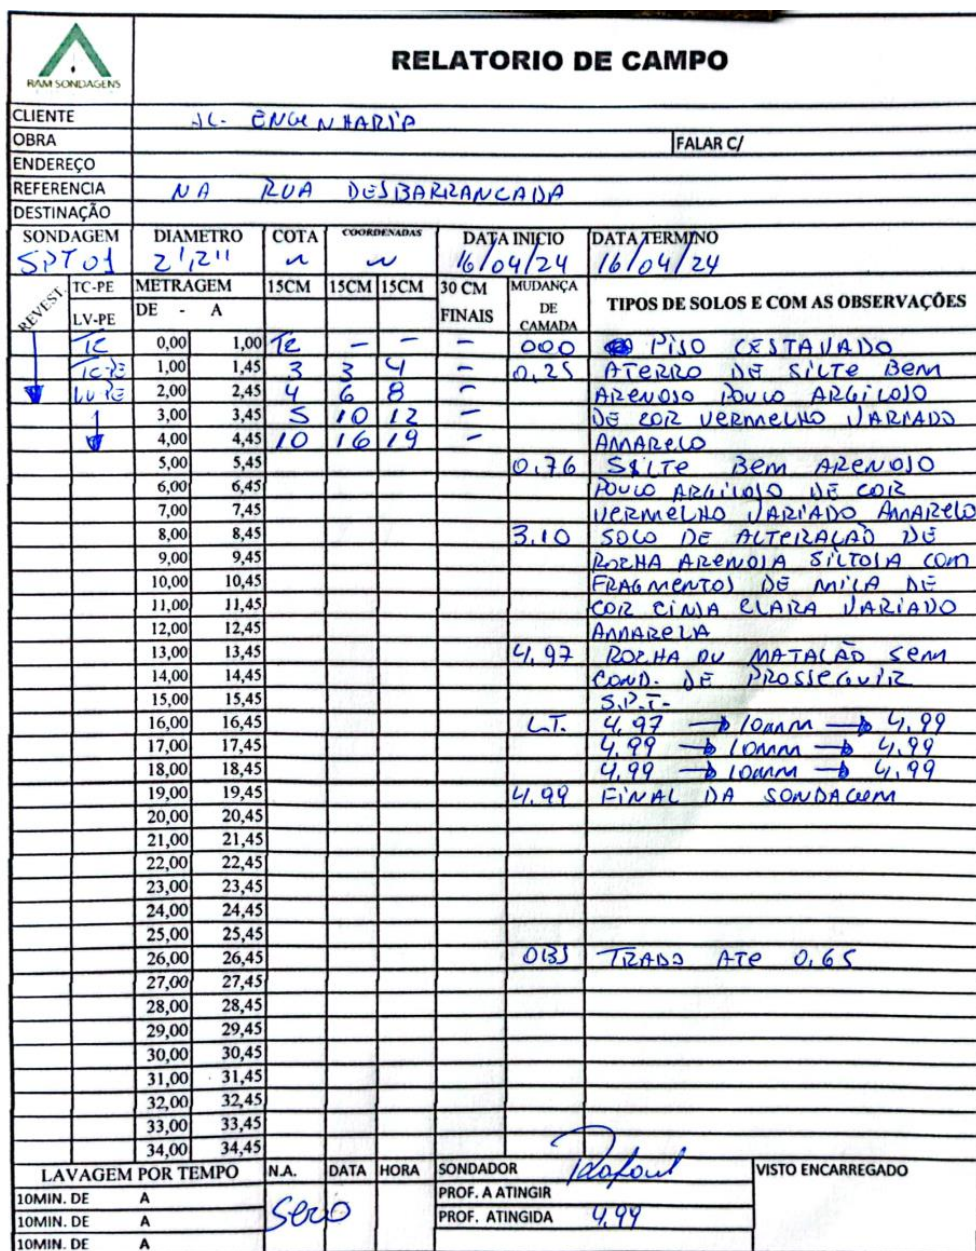 RAM SONDAGENS
RELATORIO DE CAMPO
CLIENTE JC- ENGENHARIA
OBRA FALAR C/
ENDEREÇO
REFERENCIA NA RUA DESBARRANCADA
DESTINAÇÃO
SONDAGEM DIAMETRO COTA COORDENADAS DATA INICIO DATA TERMINO
SPT 01 2',2" ~ ~ 16/04/24 16/04/24
REVEST. TC-PE METRAGEM 15CM 15CM 15CM 30 CM MUDANÇA
LV-PE DE - A FINAIS DE CAMADA TIPOS DE SOLOS E COM AS OBSERVAÇÕES
TC 0,00 1,00 TC - - - 000 PISO
TC-PE 1,00 1,45 3 3 4 - 0,25 ATERRO DE SILTE BEM
LV PE 2,00 2,45 4 6 8 - ARENOSO POUCO ARGILOSO
3,00 3,45 5 10 12 - DE COR VERMELHO VARIADO
4,00 4,45 10 16 19 - AMARELO
5,00 5,45 0,76 SILTE BEM ARENOSO
6,00 6,45 POUCO ARGILOSO DE COR
7,00 7,45 VERMELHO VARIADO AMARELO
8,00 8,45 3.10 SOLO DE ALTERAÇÃO DE
9,00 9,45 ROCHA ARENOSA SILTOSA COM
10,00 10,45 FRAGMENTOS DE MICA DE
11,00 11,45 COR CINZA CLARA VARIADO
12,00 12,45 AMARELA
13,00 13,45 4,97 ROCHA OU MATACÃO SEM
14,00 14,45 COND. DE PROSSEGUIR
15,00 15,45 S.P.T.
16,00 16,45 L.T. 4,97 → 10mm → 4,99
17,00 17,45 4,99 → 10mm → 4,99
18,00 18,45 4,99 → 10mm → 4,99
19,00 19,45 4,99 FINAL DA SONDAGEM
20,00 20,45
21,00 21,45
22,00 22,45
23,00 23,45
24,00 24,45
25,00 25,45
26,00 26,45 OBS TRADO ATE 0,65
27,00 27,45
28,00 28,45
29,00 29,45
30,00 30,45
31,00 31,45
32,00 32,45
33,00 33,45
34,00 34,45
LAVAGEM POR TEMPO N.A. DATA HORA SONDADOR VISTO ENCARREGADO
10MIN. DE A Seco PROF. A ATINGIR
10MIN. DE A PROF. ATINGIDA 4,99
10MIN. DE A